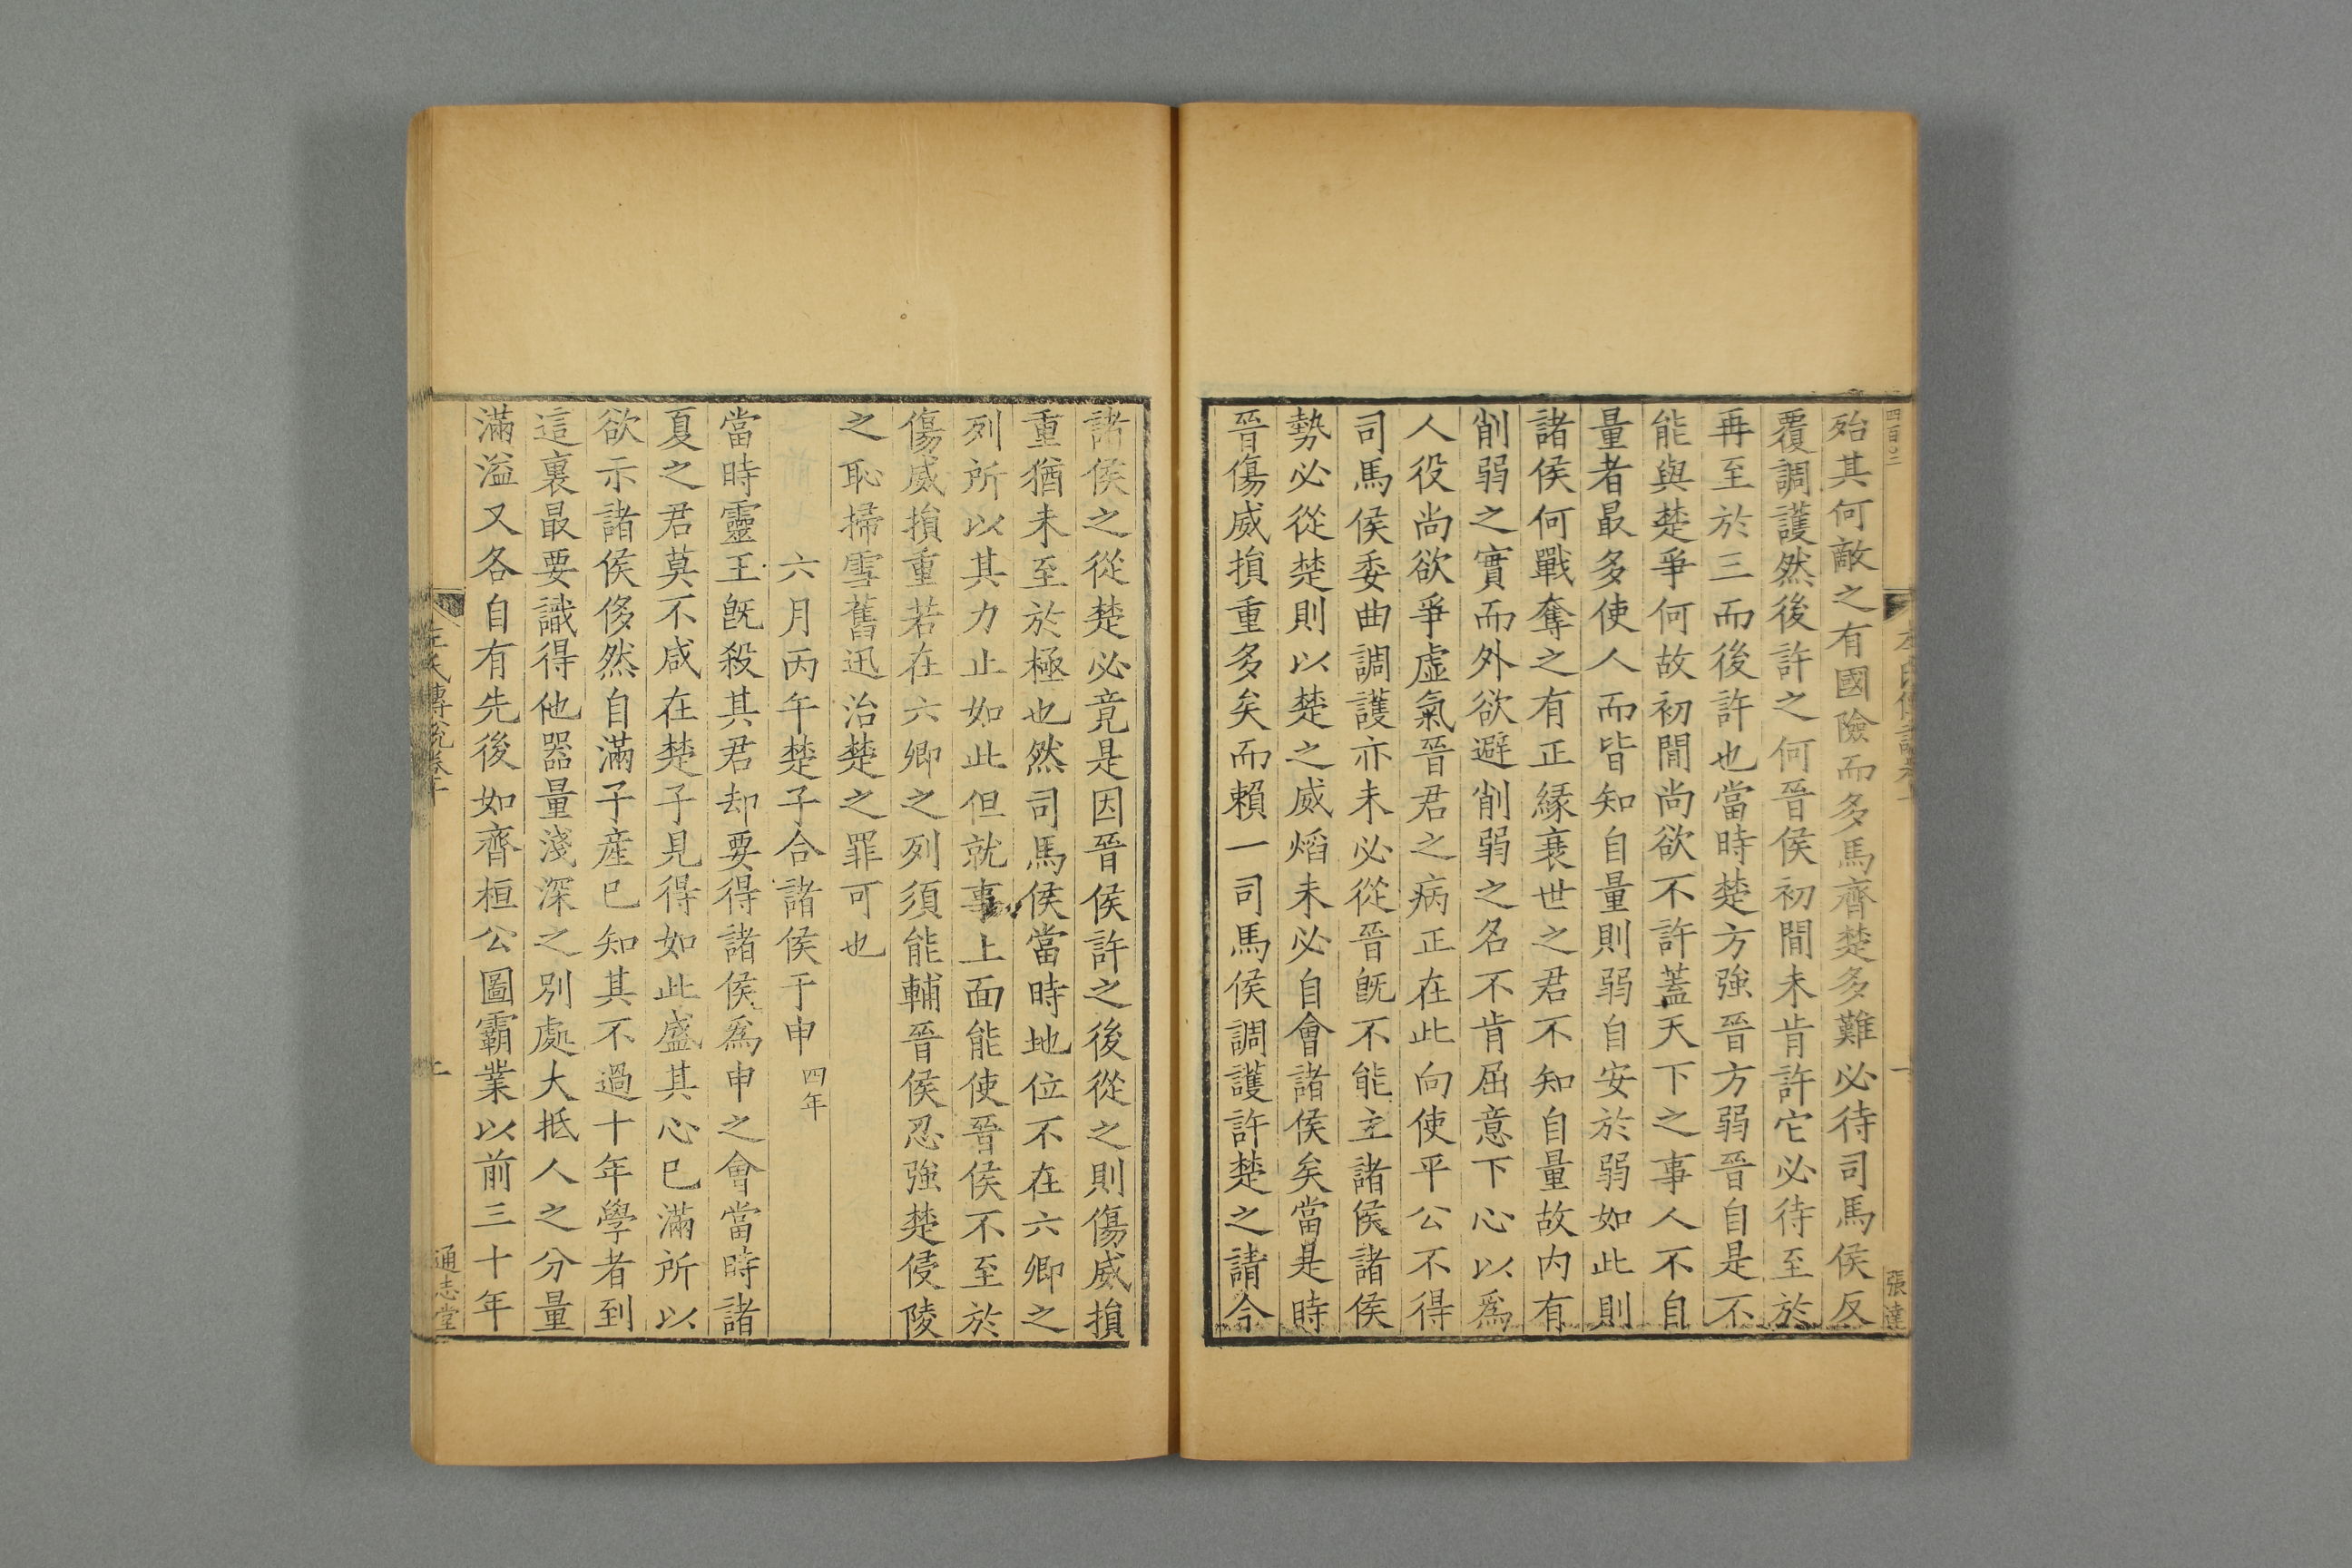 殆其何敵之有國險而多馬齊楚多難必待司馬侯反
覆調護然後許之何晉侯初間未肯許它必待至於
再至於三而後許也當時楚方強晉方弱晉自是不
能與楚爭何故初間尚欲不許蓋天下之事人不自
量者最多使人而皆知自量則弱自安於弱如此則
諸侯何戰奪之有正緣衰世之君不知自量故内有
削弱之實而外欲避削弱之名不肯屈意下心以爲
人役尚欲爭虛氣晉君之病正在此向使平公不得
司馬侯委曲調護亦未必從晉旣不能主諸侯諸侯
勢必從楚則以楚之威熖未必自會諸侯矣當是時
晉傷威損重多矣而賴一司馬侯調護許楚之請今
張達
諸侯之從楚必竟是因晉侯許之後從之則傷威損
重猶未至於極也然司馬侯當時地位不在六卿之
列所以其力止如此但就事上面能使晉侯不至於
傷威損重若在六卿之列須能輔晉侯忍強楚侵陵
之恥掃雪舊迅治楚之罪可也
六月丙午楚子合諸侯于申四年
當時靈王旣殺其君却要得諸侯爲申之會當時諸
夏之君莫不咸在楚子見得如此盛其心已滿所以
欲示諸侯侈然自滿子産已知其不過十年學者到
這裏最要識得他器量淺深之別處大抵人之分量
滿溢又各自有先後如齊桓公圖霸業以前三十年
左氏傳說卷十
通志堂